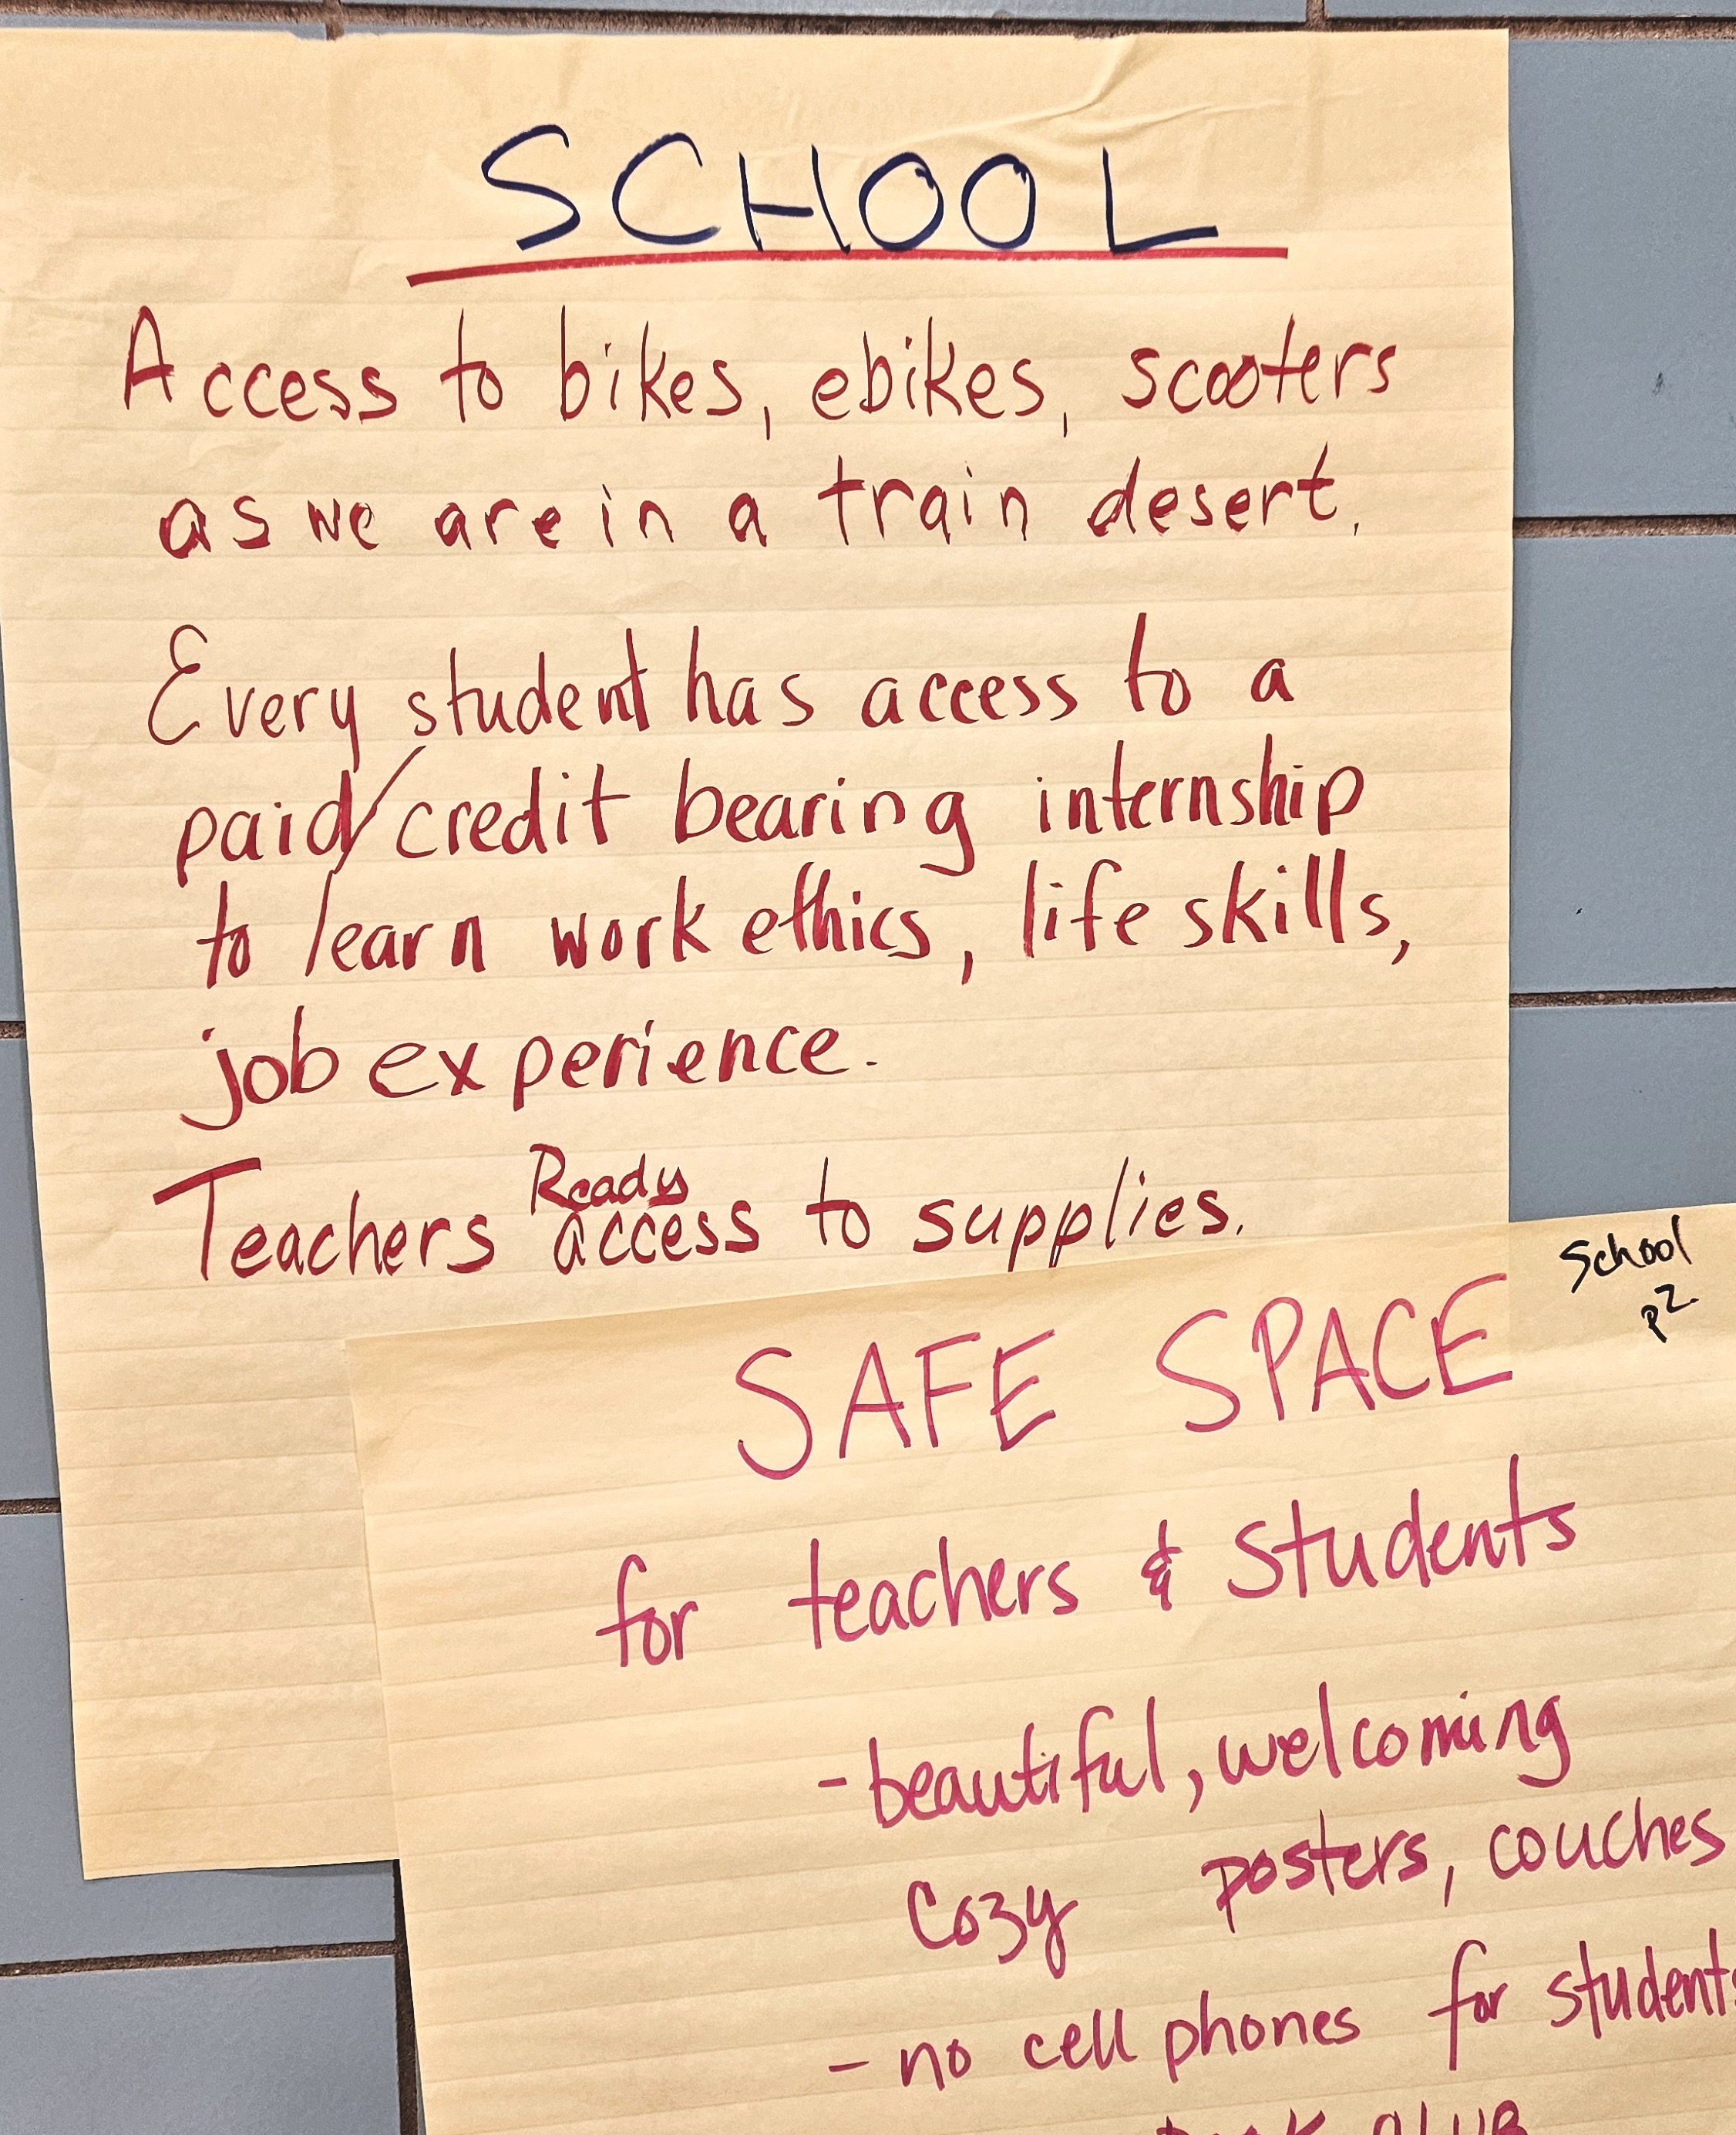 SCHOOL
Access to bikes, ebikes, scooters
as we are in a train desert.
Every student has access to a
paid/credit bearing internship
to learn work ethics, life skills,
job experience.
Teachers Ready access to supplies.
School
p2.
SAFE SPACE
for teachers & students
- beautiful, welcoming
cozy posters, couches
- no cell phones for students